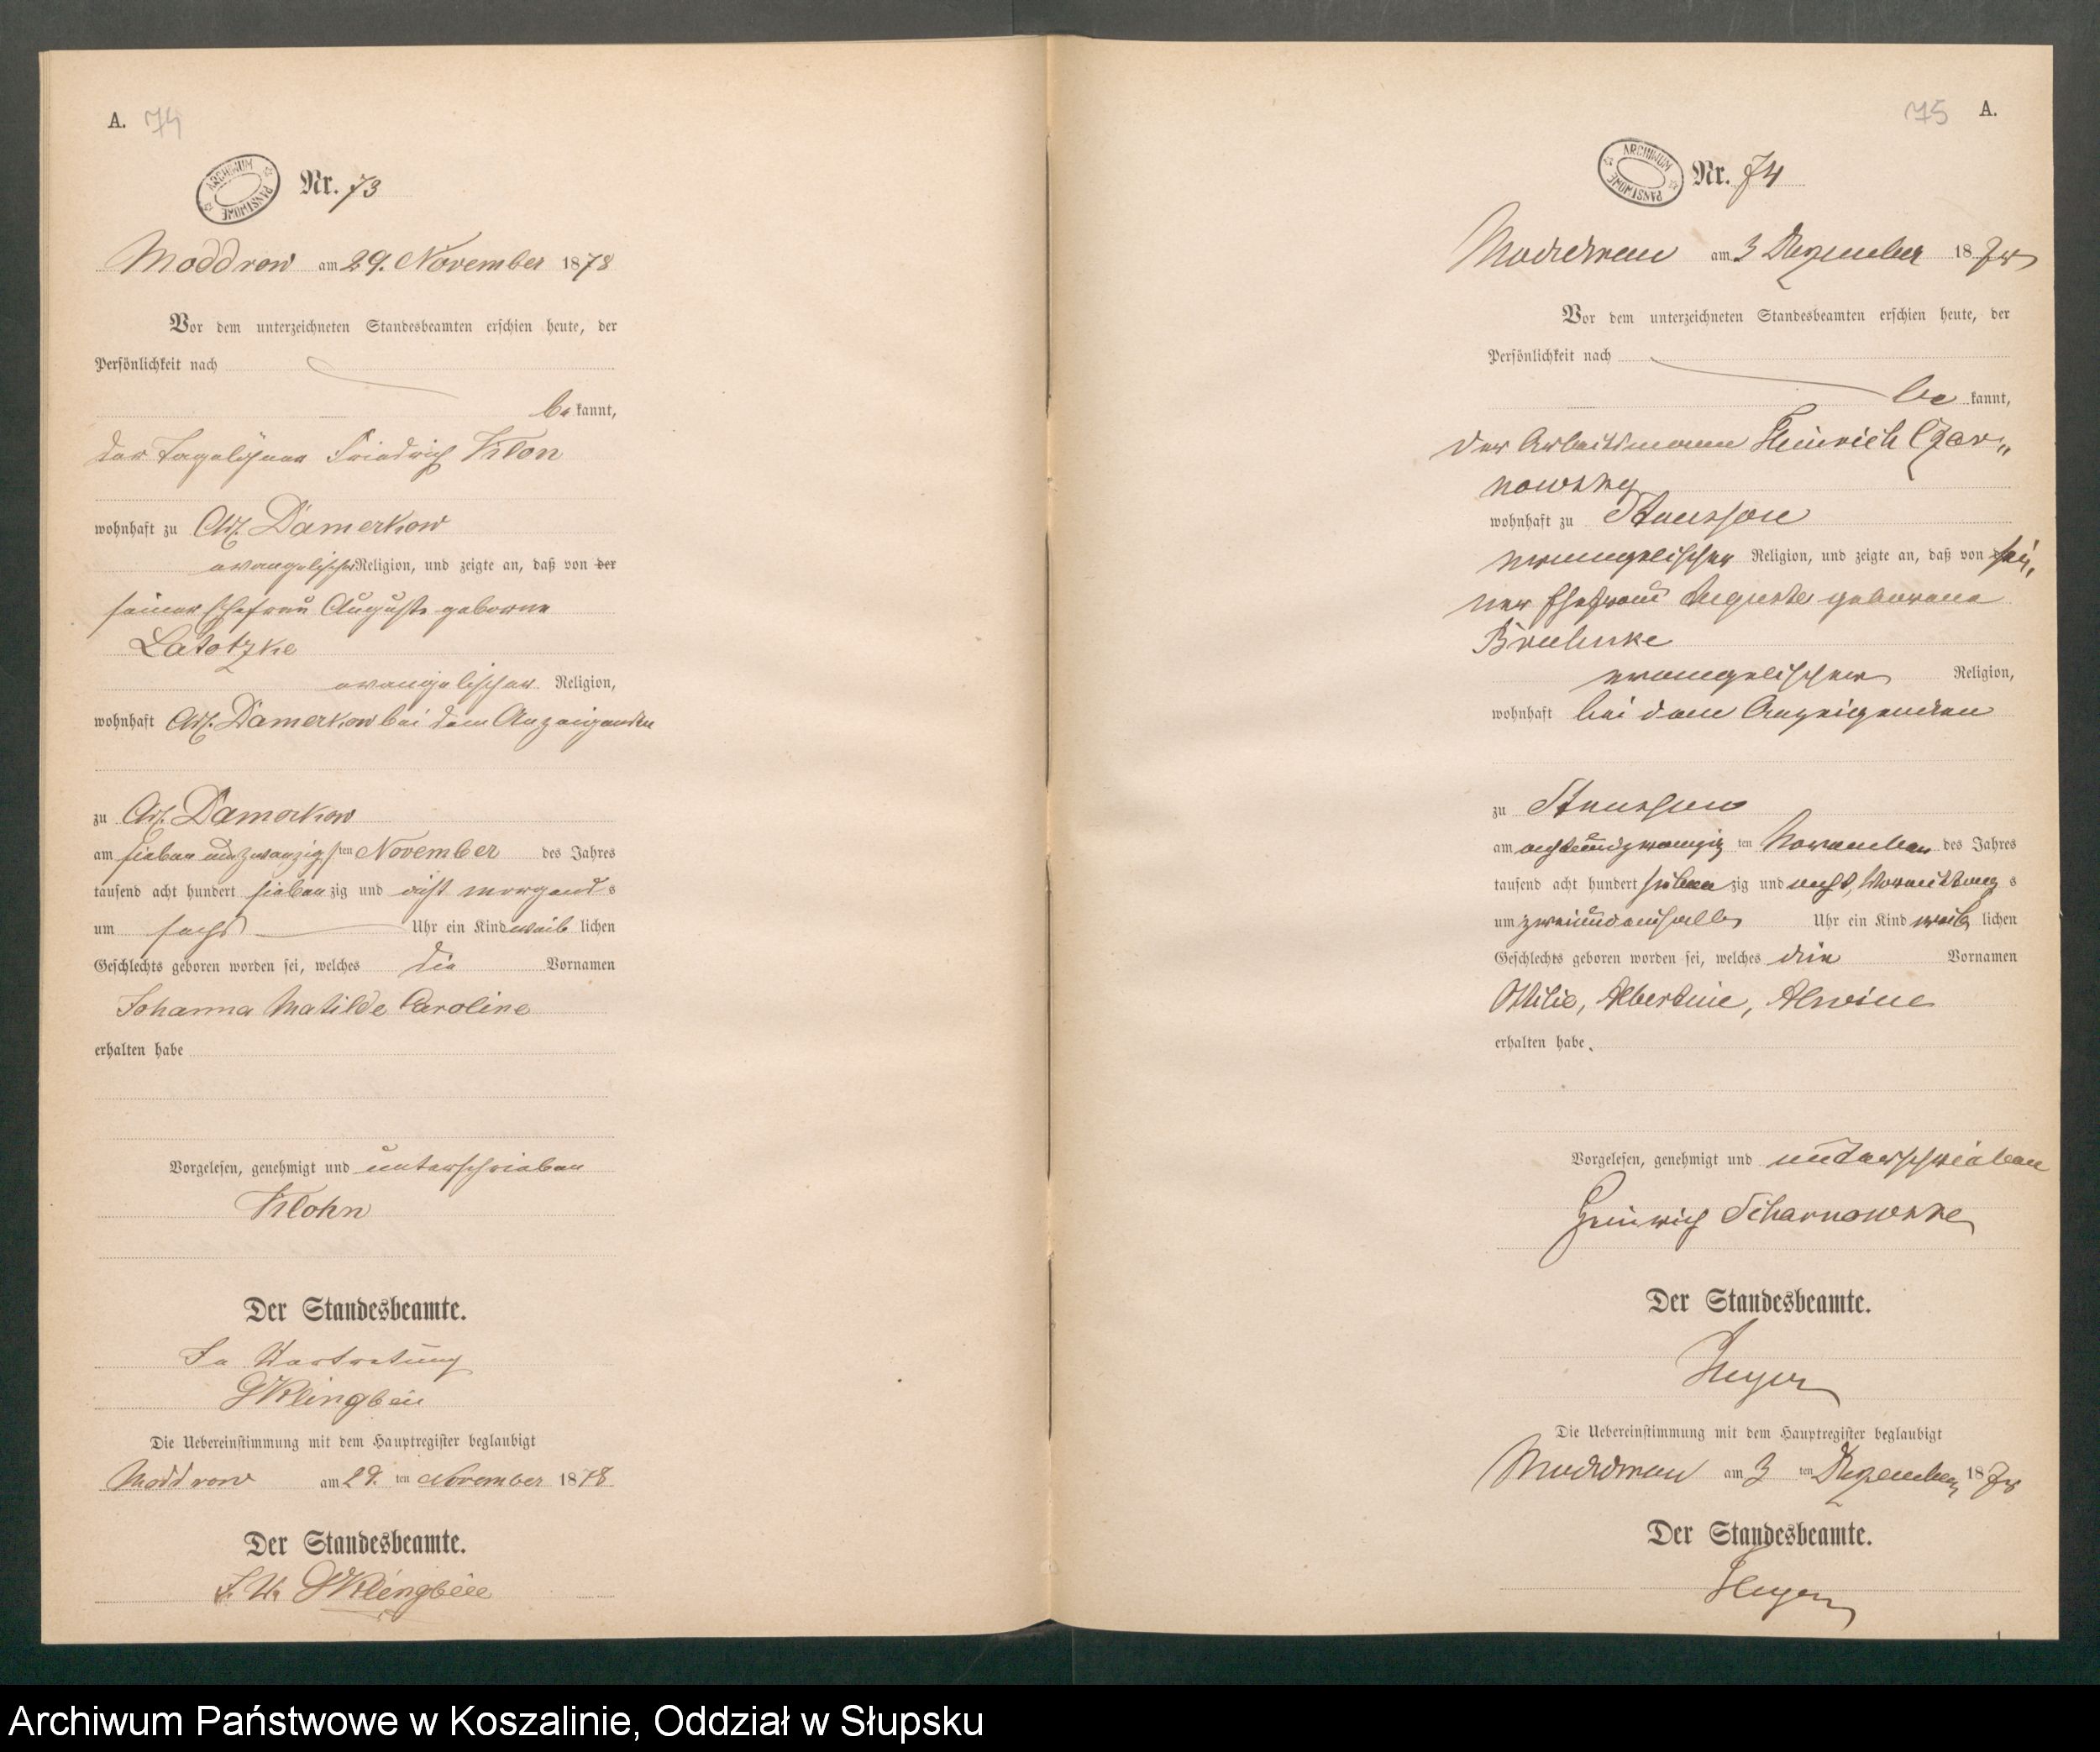 A. 74
ARCHIWUM PAŃSTWOWE
Nr. 73
Moddrow am 29. November 1878
Vor dem unterzeichneten Standesbeamten erschien heute, der
Persönlichkeit nach
be kannt,
der Tagelöhner Friedrich Klon
wohnhaft zu Adl. Damerkow
evangelischer Religion, und zeigte an, daß von der
seiner Ehefrau Auguste geborne
Latotzke
evangelischer Religion,
wohnhaft Adl. Damerkow bei dem Anzeigenden
zu Adl. Damerkow
am sieben und zwanzigsten November des Jahres
tausend acht hundert sieben zig und acht morgend s
um sechs Uhr ein Kind weib lichen
Geschlechts geboren worden sei, welches die Vornamen
Johanna Matilde Caroline
erhalten habe
Vorgelesen, genehmigt und unterschrieben
Klohn
Der Standesbeamte.
In Vertretung
Klingbeil
Die Uebereinstimmung mit dem Hauptregister beglaubigt
Moddrow am 29. ten November 1878
Der Standesbeamte.
I. V. Klingbeil
75 A.
ARCHIWUM PAŃSTWOWE
Nr. 74
Moddrow am 3 Dezember 1878
Vor dem unterzeichneten Standesbeamten erschien heute, der
Persönlichkeit nach
be kannt,
der Arbeitsmann Heinrich Czar„
nowsky
wohnhaft zu
evangelischer Religion, und zeigte an, daß von sei„
ner Ehefrau Auguste geborene
evangelischer Religion,
wohnhaft bei dem Anzeigenden
zu
am achtundzwanzig ten November des Jahres
tausend acht hundert sieben zig und acht, Vormittag s
um zweiundeinhalb Uhr ein Kind weib lichen
Geschlechts geboren worden sei, welches die Vornamen
Ottilie, Albertine, Alwine
erhalten habe.
Vorgelesen, genehmigt und unterschrieben
Heinrich Scharnowske
Der Standesbeamte.
Heyer
Die Uebereinstimmung mit dem Hauptregister beglaubigt
Moddrow am 3 ten Dezember 1878
Der Standesbeamte.
Heyer
Archiwum Państwowe w Koszalinie, Oddział w Słupsku